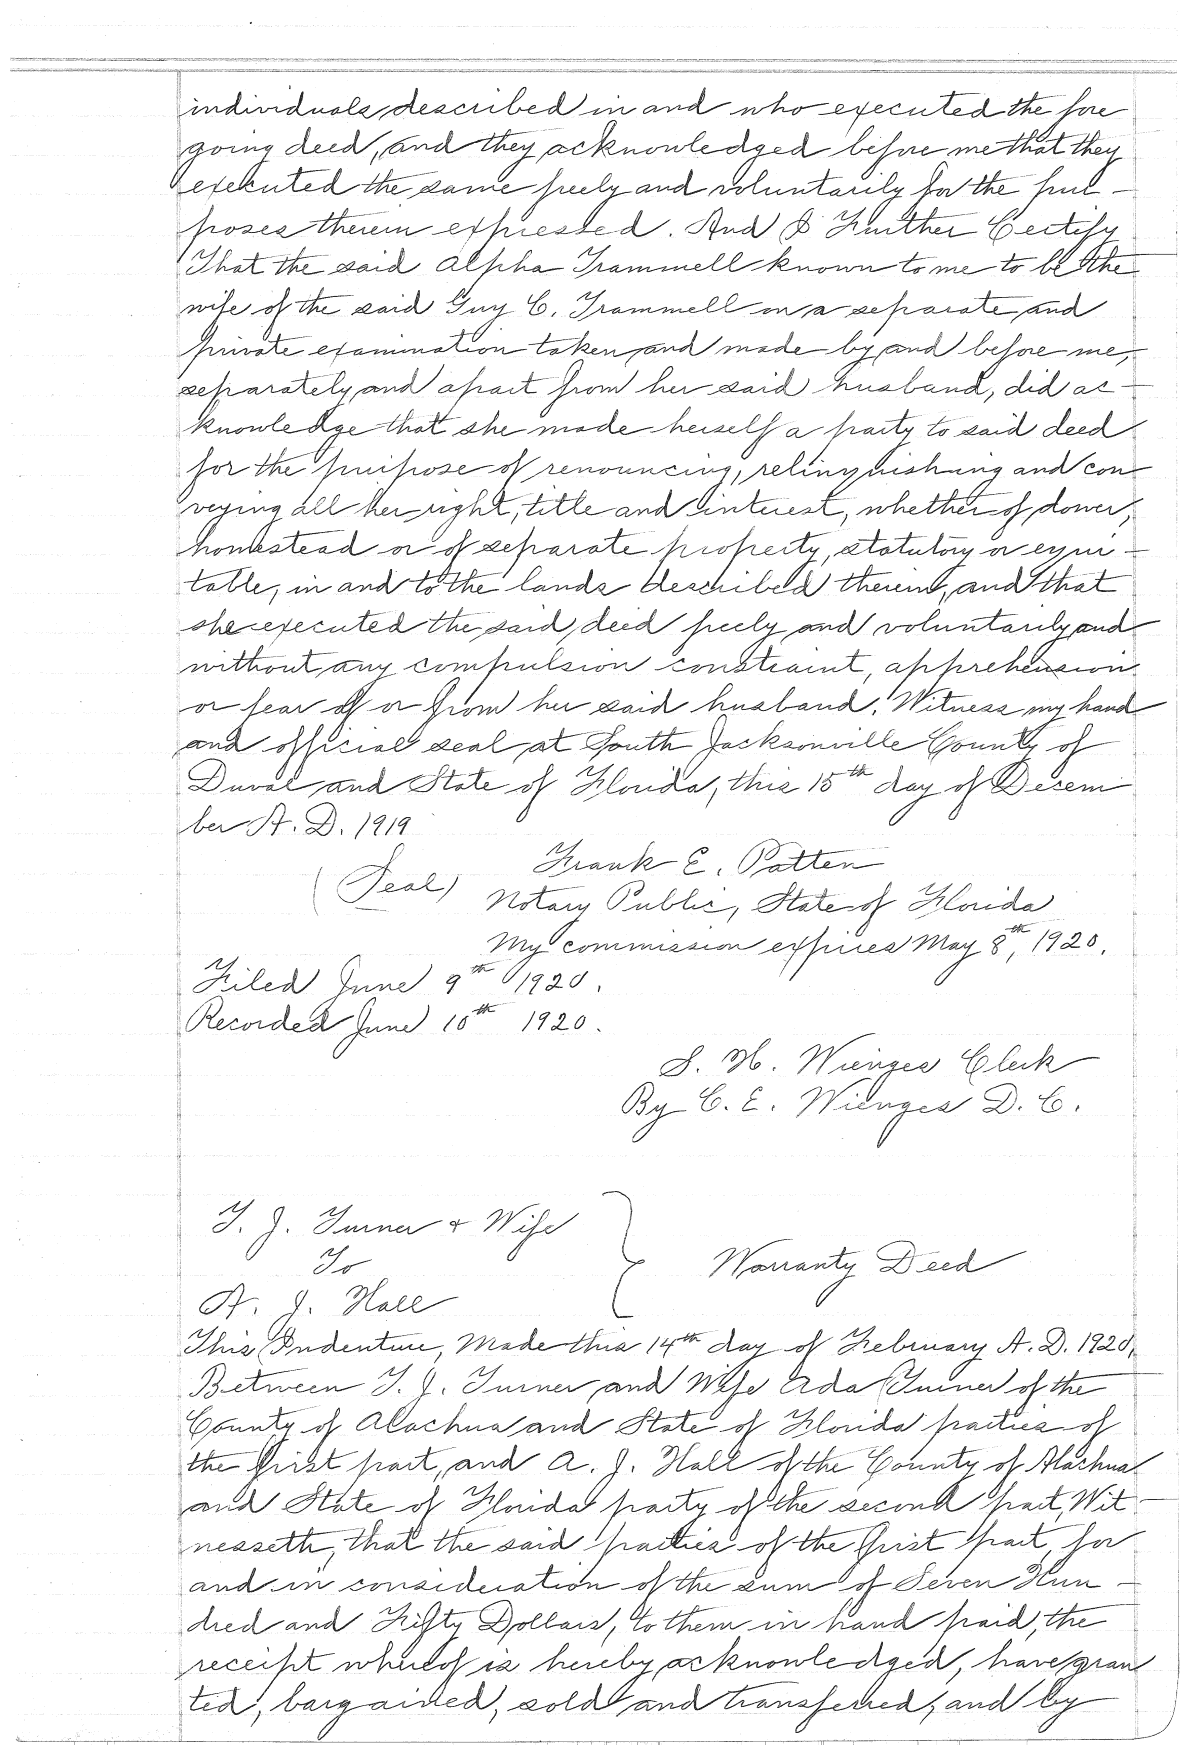 individuals described in and who executed the fore
going deed, and they acknowledged before me that they
executed the same freely and voluntarily for the pur-
poses therein expressed. And I Further Certify
That the said Alpha Trammell known to me to be the
wife of the said Guy C. Trammell on a separate and
private examination taken and made by and before me,
separately and apart from her said husband, did ac-
knowledge that she made herself a party to said deed
for the purpose of renouncing, relinquishing and con
veying all her right, title and interest, whether of dower,
homestead or of separate property, statutory or equi-
table, in and to the lands described therein, and that
she executed the said deed freely and voluntarily and
without any compulsion constraint, apprehension
or fear of or from her said husband. Witness my hand
and official seal at South Jacksonville County of
Duval and State of Florida, this 15th day of Decem
ber A. D. 1919
Frank E. Patten
(Seal) Notary Public, State of Florida
My commission expires May 8th, 1920.
Filed June 9th 1920.
Recorded June 10th 1920.
S. H. Wienges Clerk
By C. E. Wienges D. C.
T. J. Turner & Wife
To
Warranty Deed
A. J. Hall
This Indenture, Made this 14th day of February A. D. 1920,
Between T. J. Turner and Wife Ada Turner of the
County of Alachua and State of Florida parties of
the first part, and A. J. Hall of the County of Alachua
and State of Florida party of the second part, Wit-
nesseth, that the said parties of the first part, for
and in consideration of the sum of Seven Hun-
dred and Fifty Dollars, to them in hand paid, the
receipt whereof is hereby acknowledged, have gran
ted, bargained, sold and transferred, and by